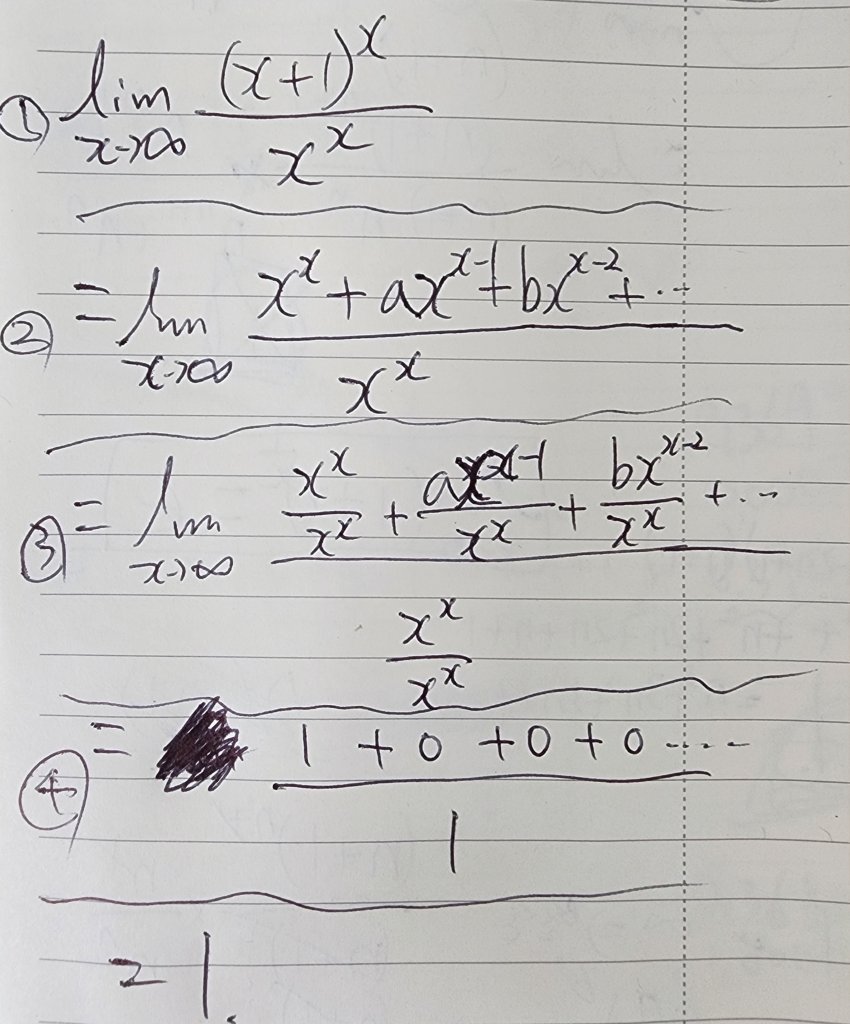 ① lim x→∞ (x+1)^x / x^x
② = lim x→∞ (x^x + ax^(x-1) + bx^(x-2) + ···) / x^x
③ = lim x→∞ (x^x/x^x + ax^(x-1)/x^x + bx^(x-2)/x^x + ···) / (x^x/x^x)
④ = (1 + 0 + 0 + 0 ····) / 1
= 1.